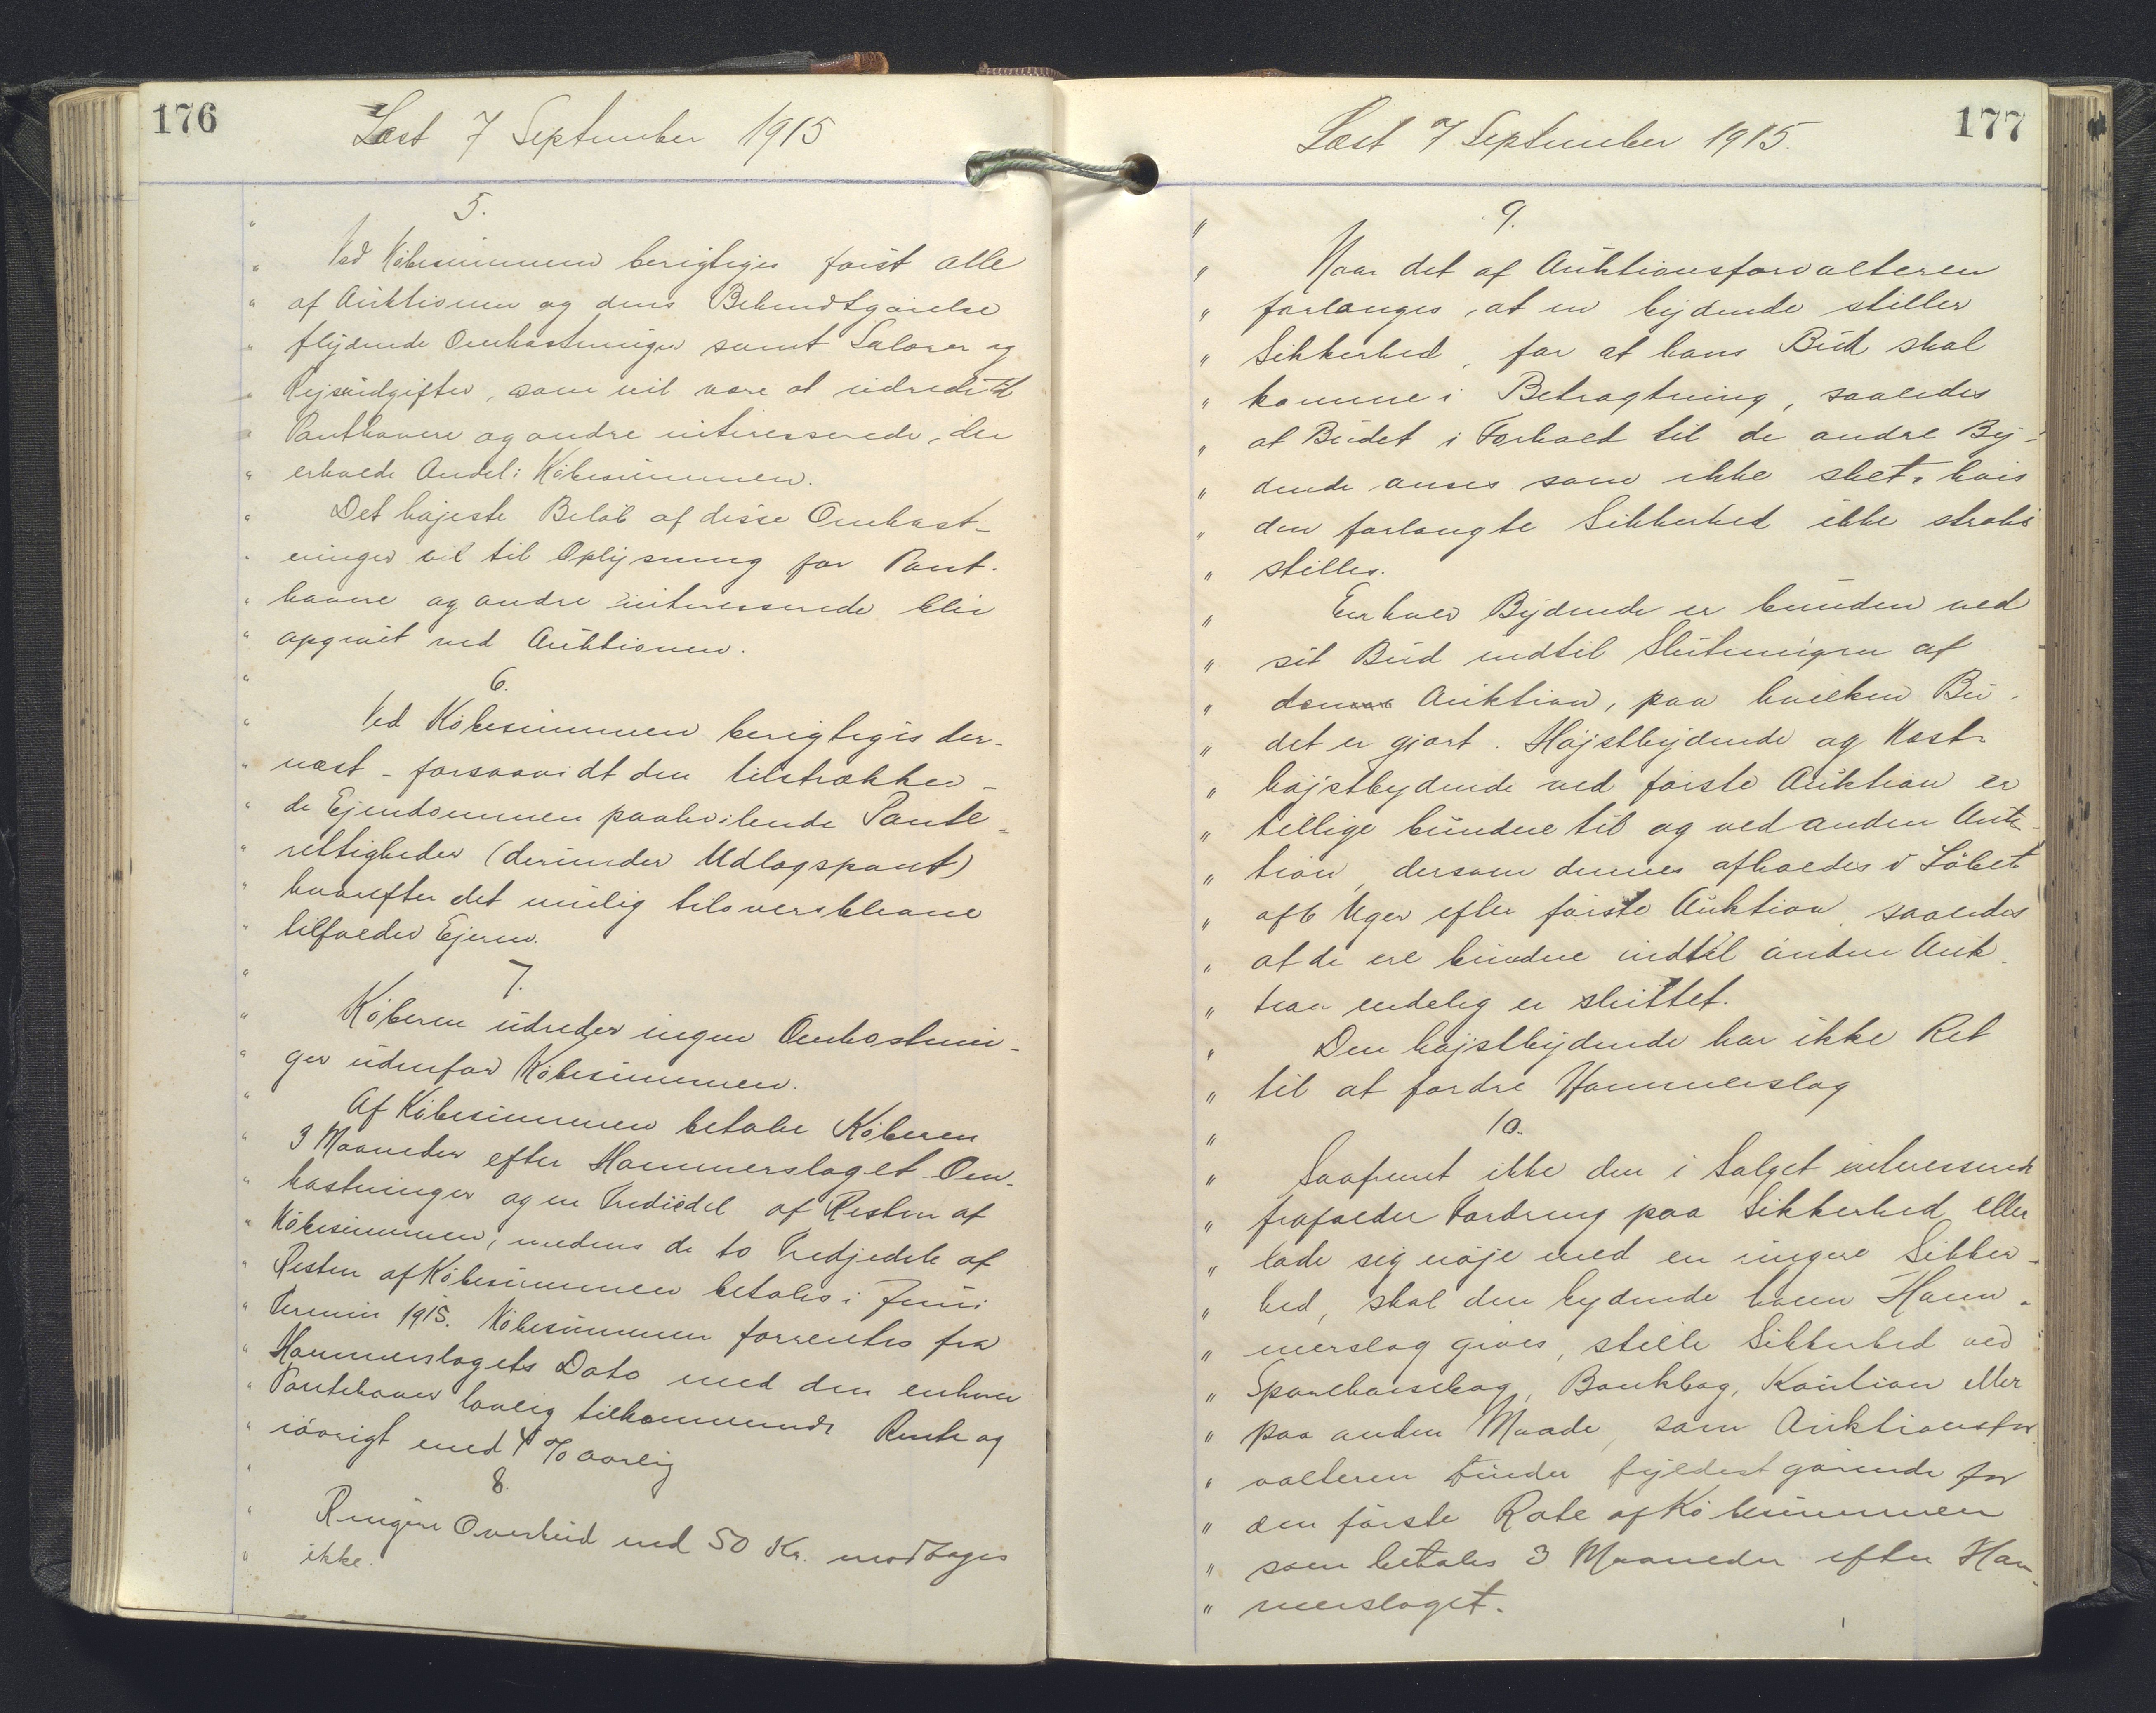 176
Læst 7 September 1915
5.
Ved Købesummen berigtiges først alle
af Auktionen og dens Bekendtgørelse
flydende Omkostninger samt Salærer og
Rejseudgifter, som vil være at udrede til
Panthavere og andre interesserede, der
erholde Andel i Købesummen.
Det højeste Beløb af disse Omkost-
ninger vil til Oplysning for Pant-
havere og andre interesserede blive
opgivet ved Auktionen.
6.
Ved Købesummen berigtiges der-
næst - forsaavidt den tilstrækker -
de Ejendommen paahvilende Pante-
rettigheder (derunder Udlægspant)
hvorefter det mulig tiloversblevne
tilfalder Ejeren.
7.
Køberen udreder ingen Omkostnin-
ger udenfor Købesummen.
Af Købesummen betaler Køberen
3 Maaneder efter Hammerslaget Om-
kostninger og en Trediedel af Resten af
Købesummen, medens de to Tredjedele af
Resten af Købesummen betales i Juni
Termin 1915. Købesummen forrentes fra
Hammerslagets Dato med den enhver
Pantehaver lovlig tilkommende Rente og
iøvrigt med 4 % aarlig
8.
Ringere Overbud end 50 Kr. modtages
ikke.
177
Læst 7 September 1915.
9.
Naar det af Auktionsforvalteren
forlanges, at en bydende stiller
Sikkerhed, for at hans Bud skal
komme i Betragtning, saaledes
at Budet i Forhold til de andre By-
dende anses som ikke sket, hvis
den forlangte Sikkerhed ikke straks
stilles.
Enhver Bydende er bunden ved
sit Bud indtil Slutningen af
den Auktion, paa hvilken Bu-
det er gjort. Højstbydende og Næst-
højstbydende ved første Auktion er
tillige bundne til og ved anden Auk-
tion, dersom dennes afholdes i Løbet
af 6 Uger efter første Auktion saaledes
at de ere bundne indtil anden Auk-
tion endelig er sluttet.
Den højstbydende har ikke Ret
til at fordre Hammerslag
10.
Saafremt ikke den i Salget interesserede
frafalder Fordring paa Sikkerhed eller
lade sig nøje med en ringere Sikker-
hed, skal den bydende hvem Ham-
merslag gives, stille Sikkerhed ved
Sparekassebog, Bankbog, Kaution eller
paa anden Maade, som Auktionsfor
valteren finder fyldestgørende for
den første Rate af Købesummen
som betales 3 Maaneder efter Ham-
merslaget.